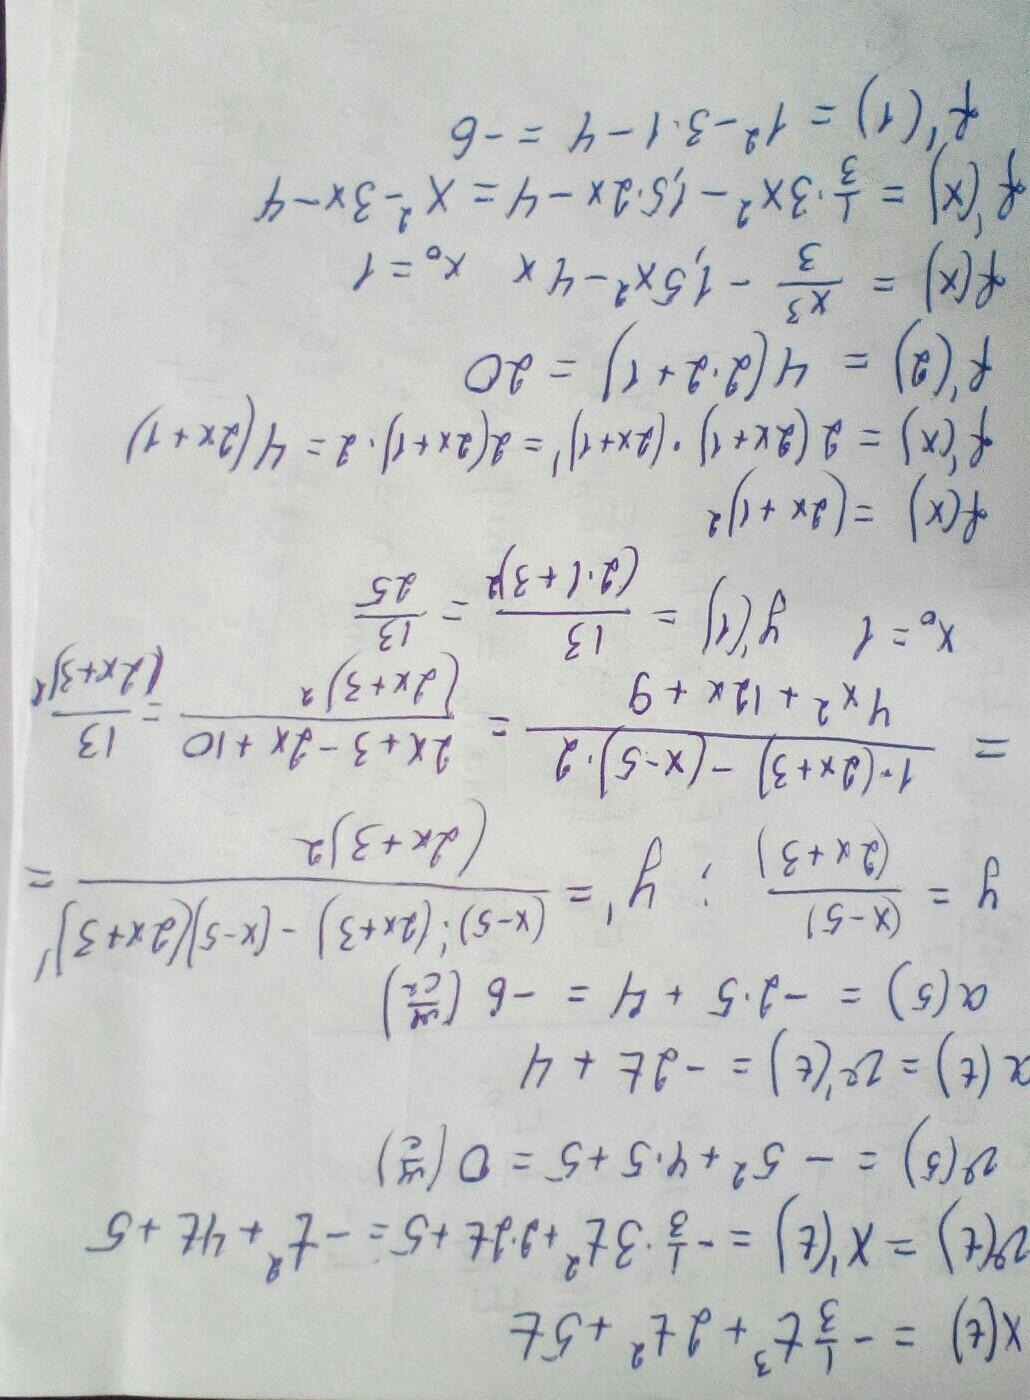 x(t) = -1/3 t³ + 2t² + 5t
v(t) = x'(t) = -1/3·3t² + 2·2t + 5 = -t² + 4t + 5
v(5) = -5² + 4·5 + 5 = 0 (м/с)
a(t) = v'(t) = -2t + 4
a(5) = -2·5 + 4 = -6 (м/с²)
y = (x-5)/(2x+3) ; y' = ((x-5)'·(2x+3) - (x-5)(2x+3)')/(2x+3)² =
= (1·(2x+3) - (x-5)·2)/(4x² + 12x + 9) = (2x + 3 - 2x + 10)/(2x+3)² = 13/(2x+3)²
x₀ = 1 y'(1) = 13/(2·1+3)² = 13/25
f(x) = (2x+1)²
f'(x) = 2(2x+1)·(2x+1)' = 2(2x+1)·2 = 4(2x+1)
f'(2) = 4(2·2+1) = 20
f(x) = x³/3 - 1,5x² - 4x x₀ = 1
f'(x) = 1/3·3x² - 1,5·2x - 4 = x² - 3x - 4
f'(1) = 1² - 3·1 - 4 = -6